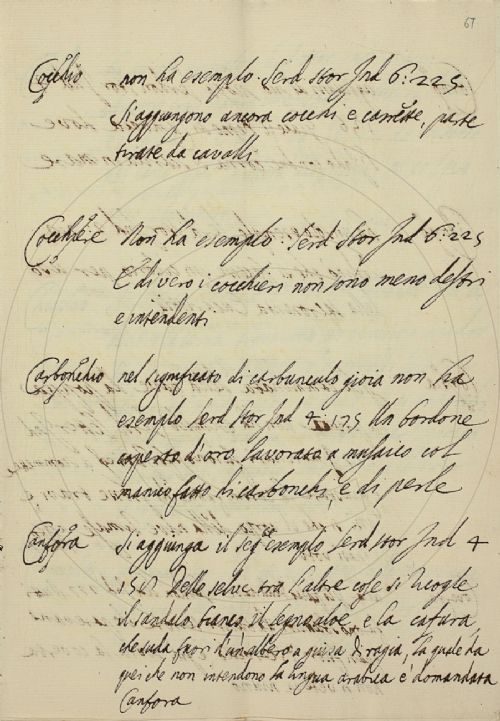 67
Cocchio non ha esempio. Serd Stor Ind 6: 225
Si aggiungono ancora cocchi e carrette, parte
tirate da cavalli
Cocchiere Non ha esempio. Serd Stor Ind 6: 225
E di vero i cocchieri non sono meno destri
e intendenti
Carbonchio nel significato di carbunculo gioia non ha
esempio Serd Stor Ind 4 175 Un bordone
coperto d'oro lavorato a musaico col
manico fatto di carbonchi, e di perle
Canfora Si aggiunga il seg.e esempio Serd Stor Ind 4
Delle selve tra l'altre cose si licogle
il sandalo bianco il legno aloe e la cafura,
che suda fuori d'un albero a guisa di ragia, la quale da
quei che non intendono la lingua arabica è domandata
Canfora